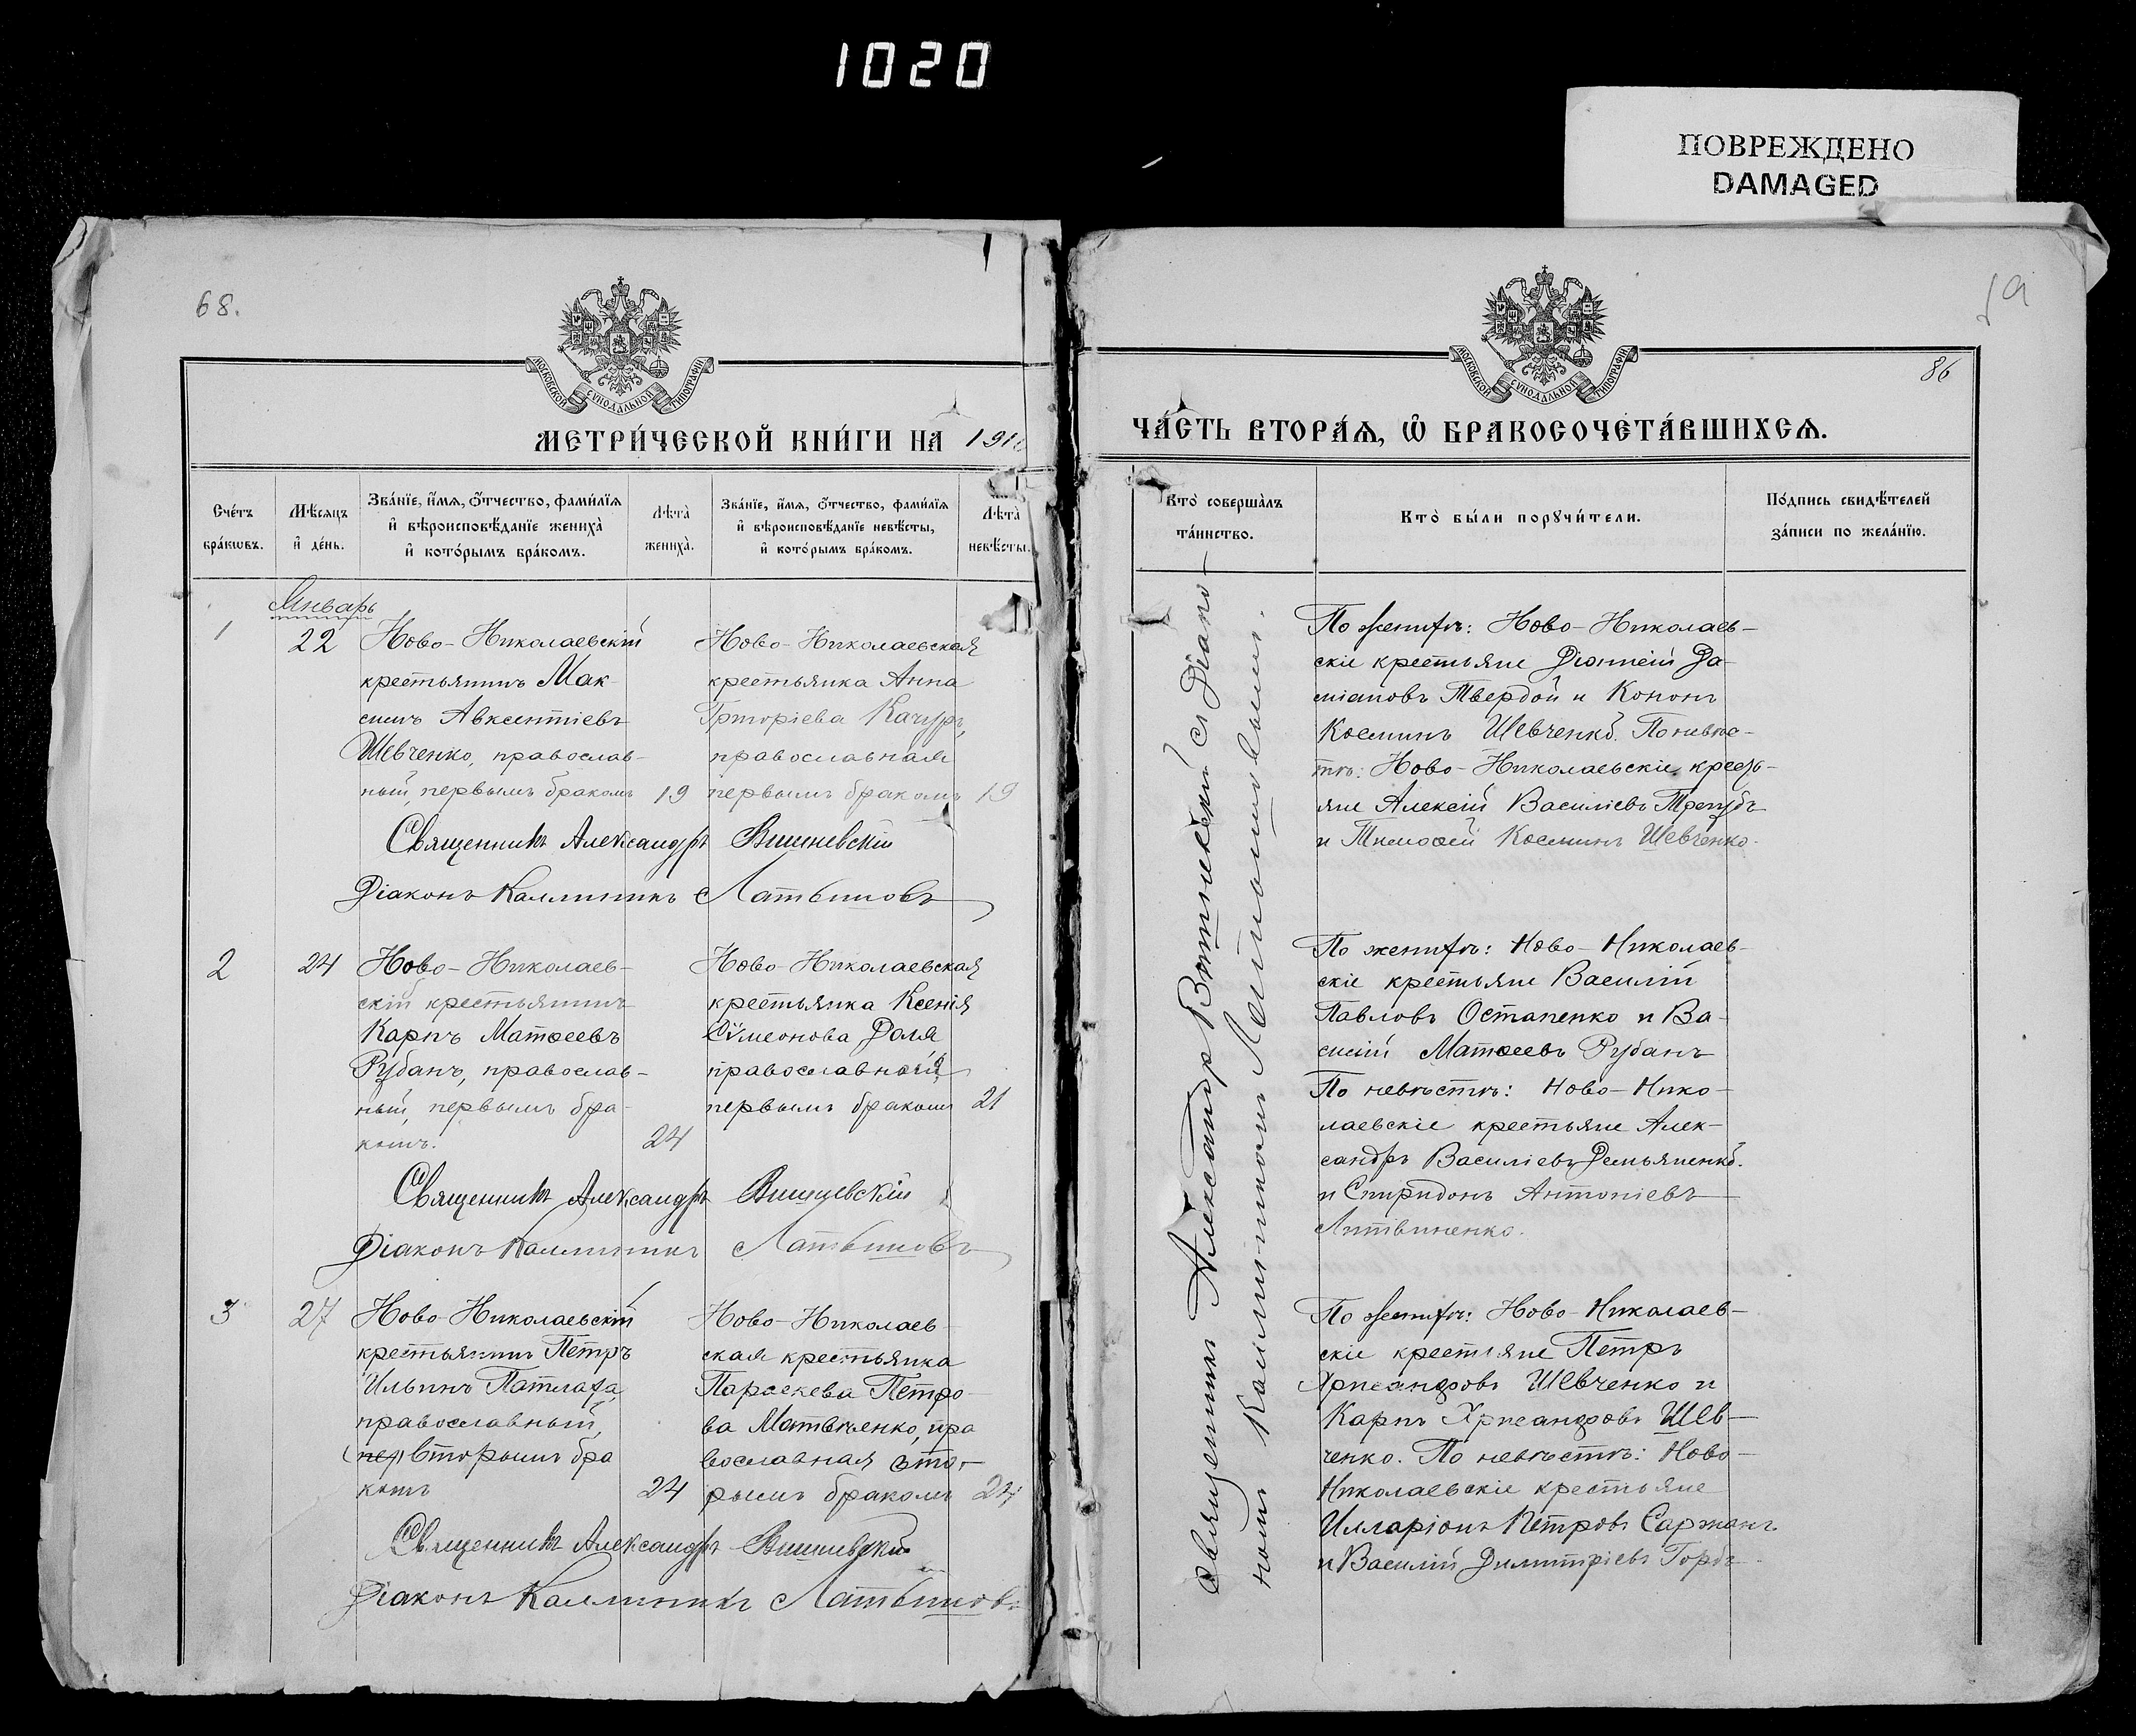 1020
ПОВРЕЖДЕНО
DAMAGED
68.
МОСКОВСКОЙ СѴНОДАЛЬНОЙ ТИПОГРАФІИ.
МЕТРИ́ЧЕСКОЙ КНИ́ГИ НА 191
Сче́тъ бра́кѡвъ.
Мѣ́сяцъ и҆ де́нь.
Зва́нїе, и҆́мя, ѻ҆́тчество, фами́лїя
и҆ вѣроисповѣ́данїе жениха̀
и҆ кото́рымъ бра́комъ.
Лѣта̀ жениха̀.
Зва́нїе, и҆́мя, ѻ҆́тчество, фами́лїя
и҆ вѣроисповѣ́данїе невѣ́сты,
и҆ кото́рымъ бра́комъ.
Лѣта̀ невѣ́сты.
Январь
1
22
Ново-Николаевскій
крестьянинъ Мак-
симъ Авксентіевъ
Шевченко, православ-
ный, первымъ бракомъ
19
Ново-Николаевская
крестьянка Анна
Григоріева Качуръ,
православная
первымъ бракомъ
19
Священникъ Александръ Вишневскій
Діаконъ Каллиникъ
2
24
Ново-Николаев-
скій крестьянинъ
Карпъ Матѳеевъ
Рубанъ, православ-
ный, первымъ бра-
комъ.
24
Ново-Николаевская
крестьянка Ксенія
Сѵмеонова Доля
православная
первымъ бракомъ
21
Священникъ Александръ Вишневскій
Діаконъ Каллиникъ
3
27
Ново-Николаевскій
крестьянинъ Петръ
Ильинъ Патлаха,
православный,
(пер) вторымъ бра
комъ
24
Ново-Николаев-
ская крестьянка
Параскева Петро-
ва Матвѣенко, пра
вославная вто-
рымъ бракомъ
24
Священникъ Александръ Вишневскій
Діаконъ Каллиникъ
86
МОСКОВСКОЙ СѴНОДАЛЬНОЙ ТИПОГРАФІИ.
ЧА́СТЬ ВТОРА́Я, Ѡ҆ БРАКОСОЧЕТА́ВШИХСЯ.
Кто̀ соверша̀лъ
та́инство.
Кто̀ бы́ли порꙋчи́тели.
По́дпись свидѣ́телей
за́писи по жела́нїю.
Священникъ Александръ Вишневскій съ Діако-
номъ Каллиникомъ
По женихѣ: Ново-Николаев-
скіе крестьяне Діонисій Да-
міановъ Твердой и Кононъ
Косминъ Шевченко. По невѣс-
тѣ: Ново-Николаевскіе кресть-
яне Алексій Василіевъ
и Тимоѳей Косминъ Шевченко.
По женихѣ: Ново-Николаев-
скіе крестьяне Василій
Павловъ Остапенко и Ва-
силій Матѳеевъ Рубанъ
По невѣстѣ: Ново-Нико-
лаевскіе крестьяне Алек-
сандръ Василіевъ Демьяненко.
и Спиридонъ Антоніевъ
Литвиненко.
По женихѣ: Ново-Николаев-
скіе крестьяне Петръ
Хрисанфовъ Шевченко и
Карпъ Хрисанфовъ Шев-
ченко. По невѣстѣ: Ново-
Николаевскіе крестьяне
Илларіонъ Петровъ Саржанъ
и Василій Димитріевъ Горбъ